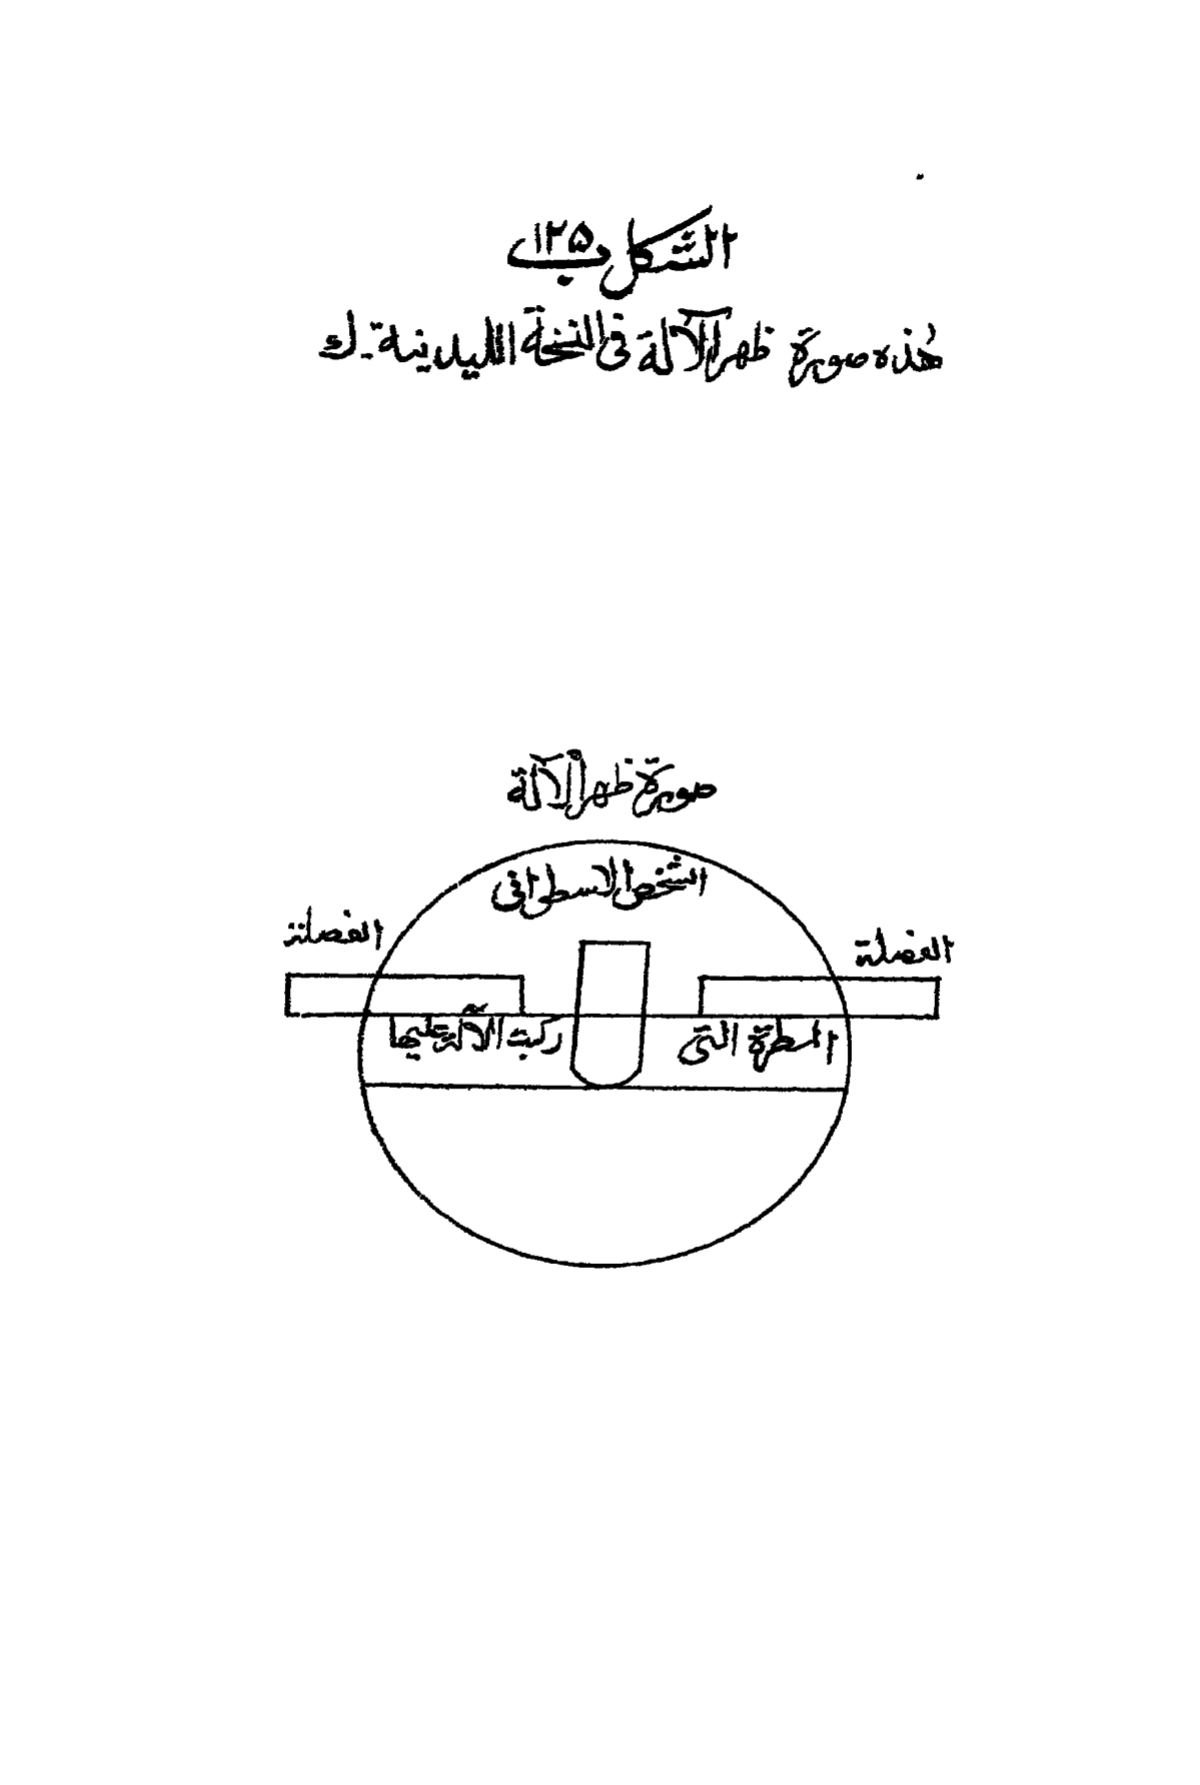 الشكل ١٢٥ ب
هٰذه صورة ظهر الآلة فى النسخة الليدينية - ك
صورة ظهر الآلة
الشخص الاسطوانى
الفضلة
الفضلة
المسطرة التى ركبت الآلة عليها